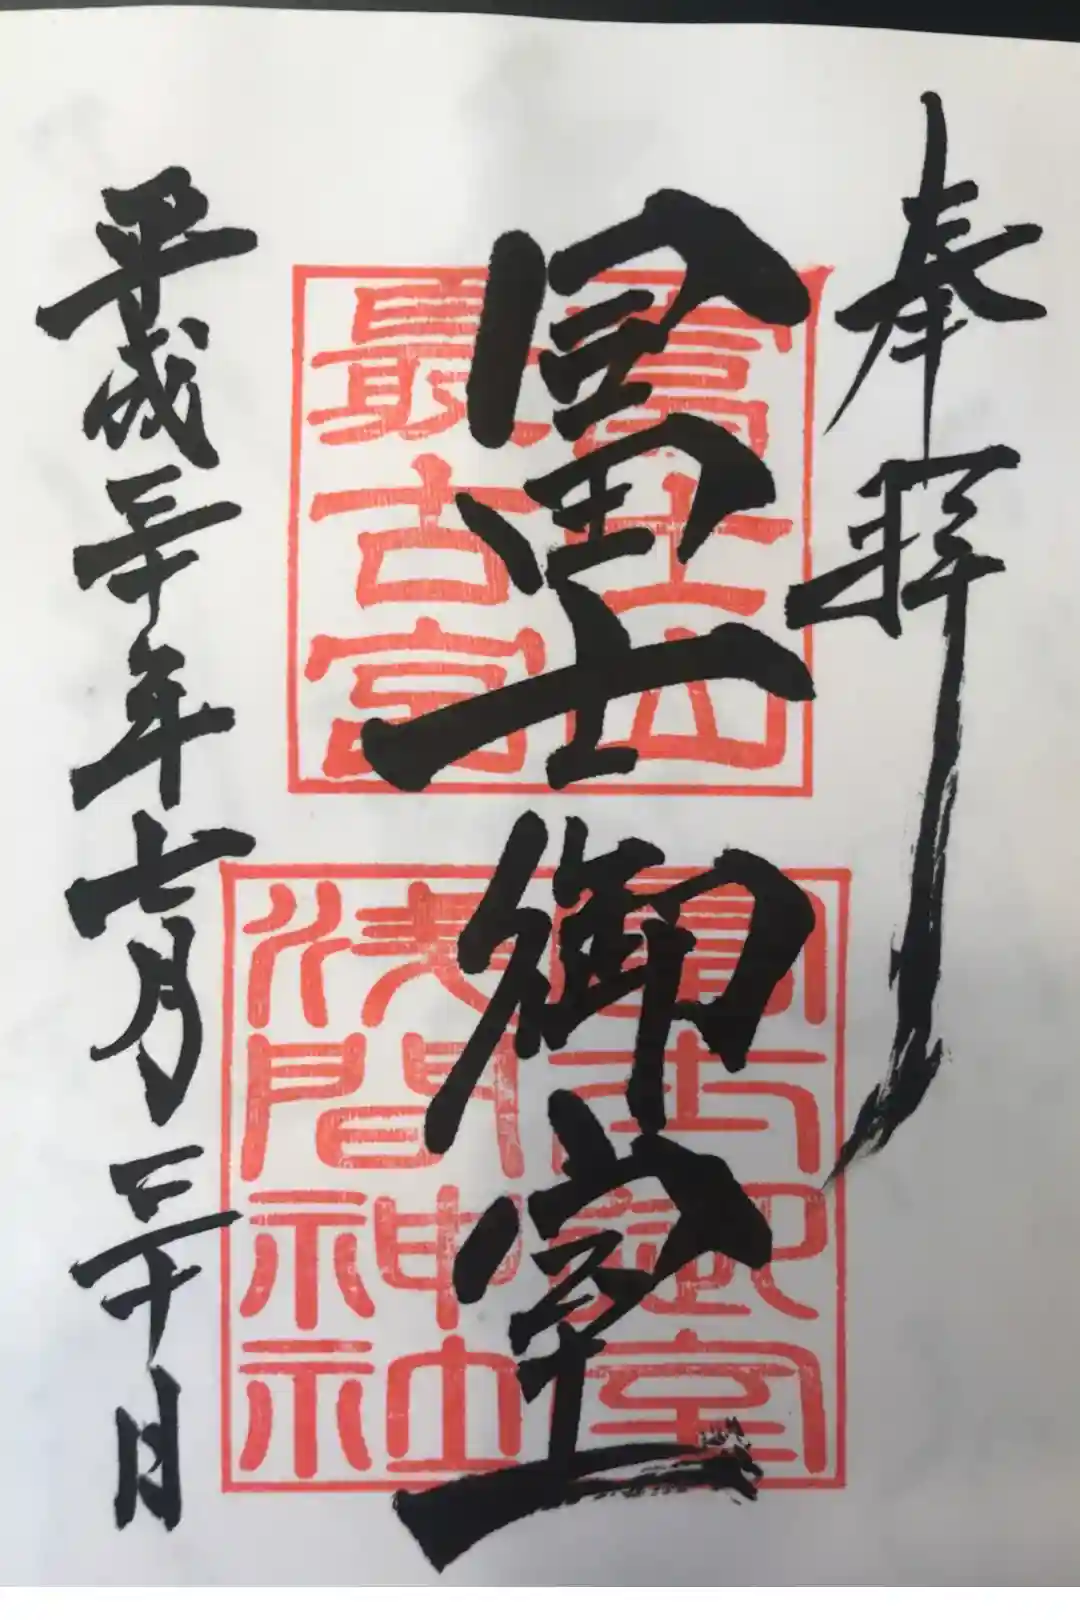 奉拝
冨士御室
富士山
最古宮
富士御室
浅間神社
平成三十年七月三十日